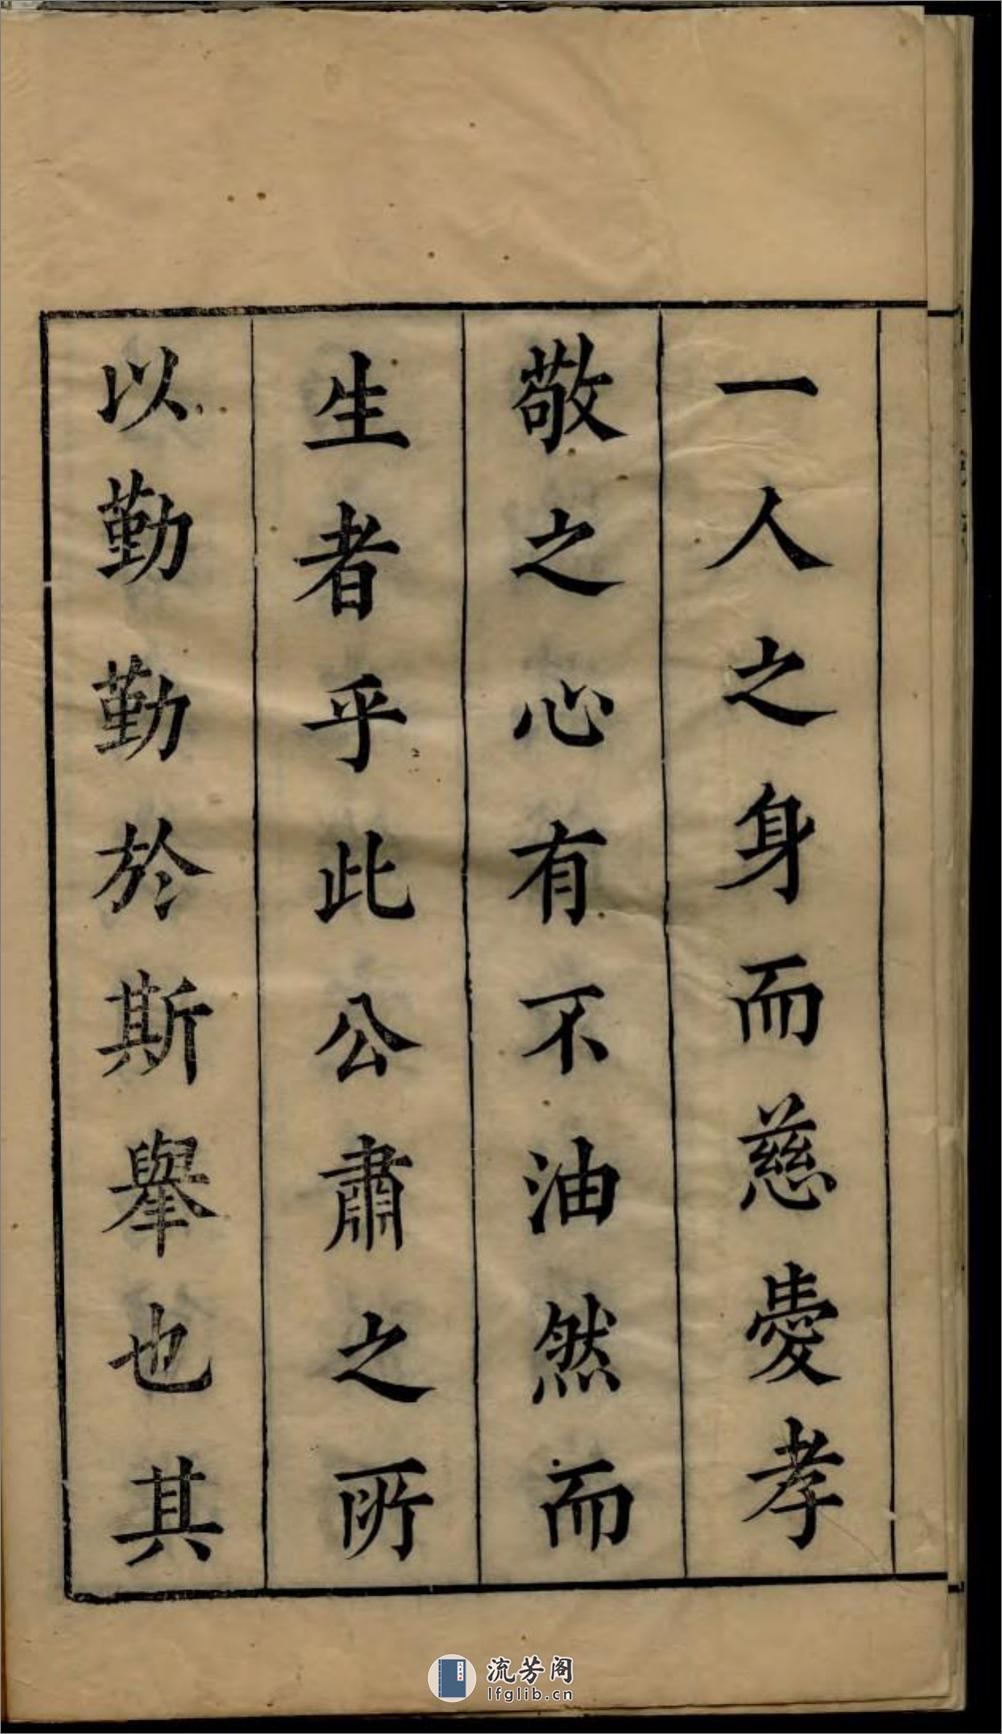 一人之身而慈愛孝
敬之心有不油然而
生者乎此公肅之所
以勤勤於斯舉也其
流芳阁
lfglib.cn